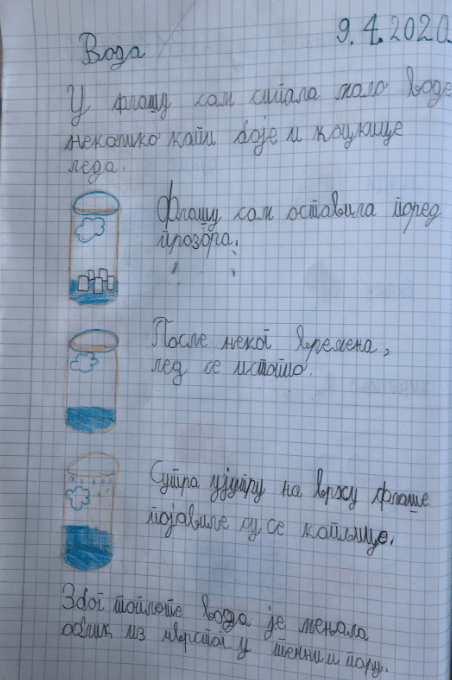 9.4.2020
Вода
У флашу сам сипала мало воде
неколико капи боје и коцкице
леда.
Флашу сам оставила поред
прозора.
После неког времена,
лед се истопио.
Сутра ујутру на врху флаше
појавиле су се капљице.
Због топлоте вода је мењала
облик из чврстог у течни и пару.